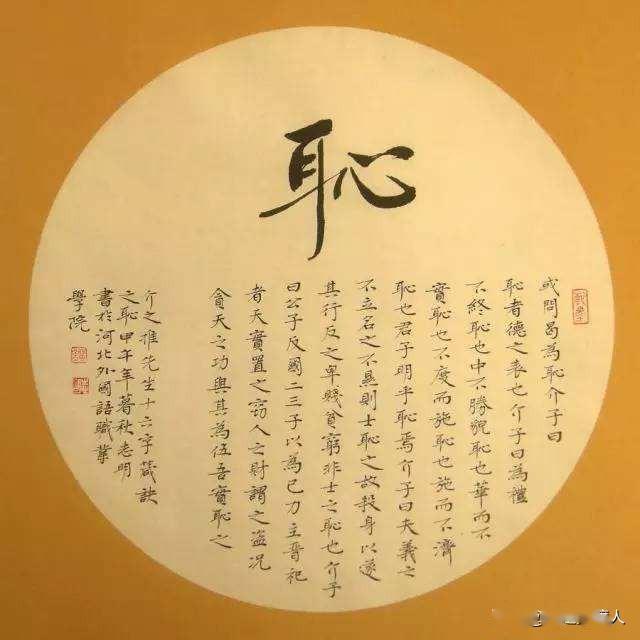 恥
或問曷為恥介子曰
恥者德之表也介子曰為禮
不終恥也中不勝貌恥也華而不
實恥也不度而施恥也施而不濟
恥也君子明乎恥焉介子曰夫義之
不立名之不顯則士恥之故殺身以遂
其行反之卑賤貧窮非士之恥也介子
曰公子反國二三子以為己力主晉祀
者天實置之竊人之財謂之盜況
貪天之功與其為伍吾實恥之
介之推先生十六字箴訣
之恥甲午年暮秋老明
書於河北外國語職業
學院
人